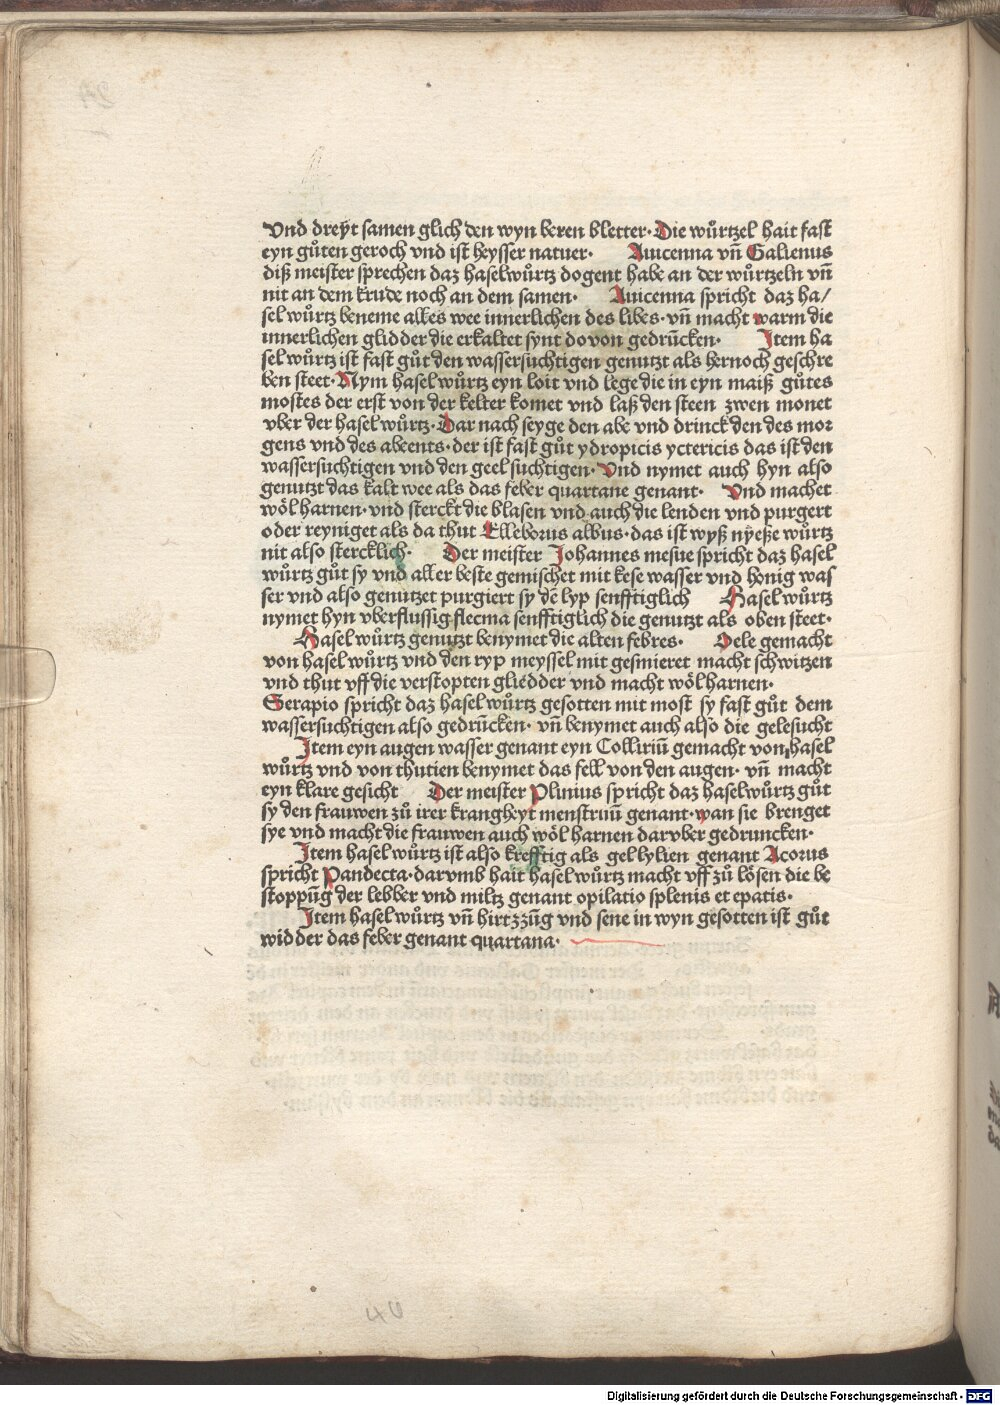 Vnd dreẏt samen glich den wyn beren bletter· Die wůrtzel hait fast
eyn gůten geroch vnd ist heysser natuer· Auicenna vn̄ Galienus
diß meister sprechen daz haselwůrtz dogent habe an der wůrtzeln vn̄
nit an dem krude noch an dem samen· Auicenna spricht daz ha/
sel wůrtz beneme alles wee innerlichen des libes· vn̄ macht warm die
innerlichen glidder die erkaltet synt dovon gedrūcken· Item ha
sel wůrtz ist fast gůt den wassersuchtigen genutzt als hernoch geschre
ben steet· Nym hasel wůrtz eyn loit vnd lege die in eyn maiß gůtes
mostes der erst von der kelter komet vnd laß den steen zwen monet
vber der hasel wůrtz· Dar nach seyge den abe vnd drinck den des mor
gens vnd des abeents· der ist fast gůt ydropicis yctericis das ist den
wassersuchtigen vnd den geel suchtigen· Vnd nymet auch hyn also
genutzt das kalt wee als das feber quartane genant· Vnd machet
wöl harnen· vnd sterckt die blasen vnd auch die lenden vnd purgert
oder reyniget als da thut Elleborus albus· das ist wyß nẏeße wůrtz
nit also stercklich· Der meister Johannes mesue spricht daz hasel
wůrtz gůt sy vnd aller beste gemischet mit kese wasser vnd honig was
ser vnd also genutzet purgiert sy dē lyp senfftiglich Hasel wůrtz
nymet hyn vberflussig flecma senfftiglich die genutzt als oben steet·
Hasel wůrtz genutzt benymet die alten febres· Oele gemacht
von hasel wůrtz vnd den ryp meyssel mit gesmieret macht schwitzen
vnd thut vff die verstopten gliedder vnd macht wöl harnen·
Serapio spricht daz hasel wůrtz gesotten mit most sy fast gůt dem
wassersuchtigen also gedrūcken· vn̄ benymet auch also die gelesucht
Item eyn augen wasser genant eyn Colliriū gemacht von hasel
wůrtz vnd von thutien benymet das fell von den augen· vn̄ macht
eyn klare gesicht Der meister Plinius spricht daz haselwůrtz gůt
sy den frauwen zů irer krangheyt menstruū genant· wan sie brenget
sye vnd macht die frauwen auch wöl harnen darvber gedruncken·
Item hasel wůrtz ist also krefftig als gel lylien genant Acorus
spricht Pandecta· darvmb hait hasel wůrtz macht vff zů lösen die be
stoppūg der lebber vnd miltz genant opilatio splenis et epatis·
Item hasel wůrtz vn̄ hirtzzūg vnd sene in wyn gesotten ist gůt
widder das feber genant quartana·
Digitalisierung gefördert durch die Deutsche Forschungsgemeinschaft · DFG